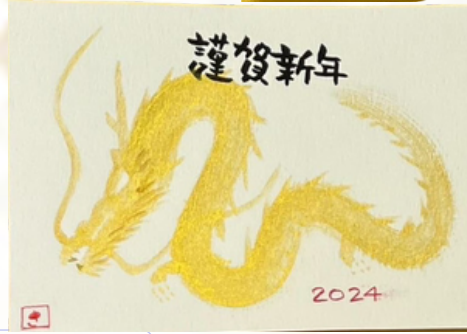 謹賀新年
2024